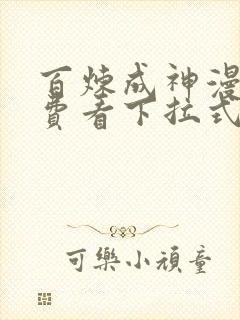 百炼成神漫
费看下拉式
可樂小頑童